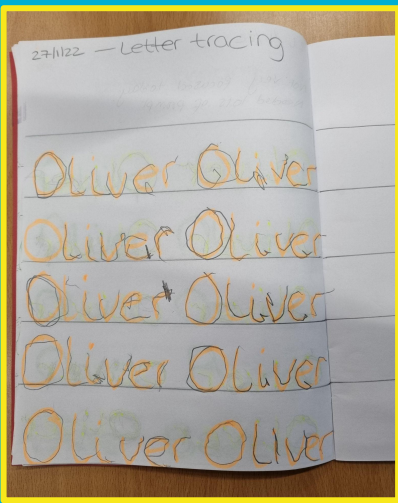 27/1/22 — Letter tracing
Oliver Oliver
Oliver Oliver
Oliver Oliver
Oliver Oliver
Oliver Oliver